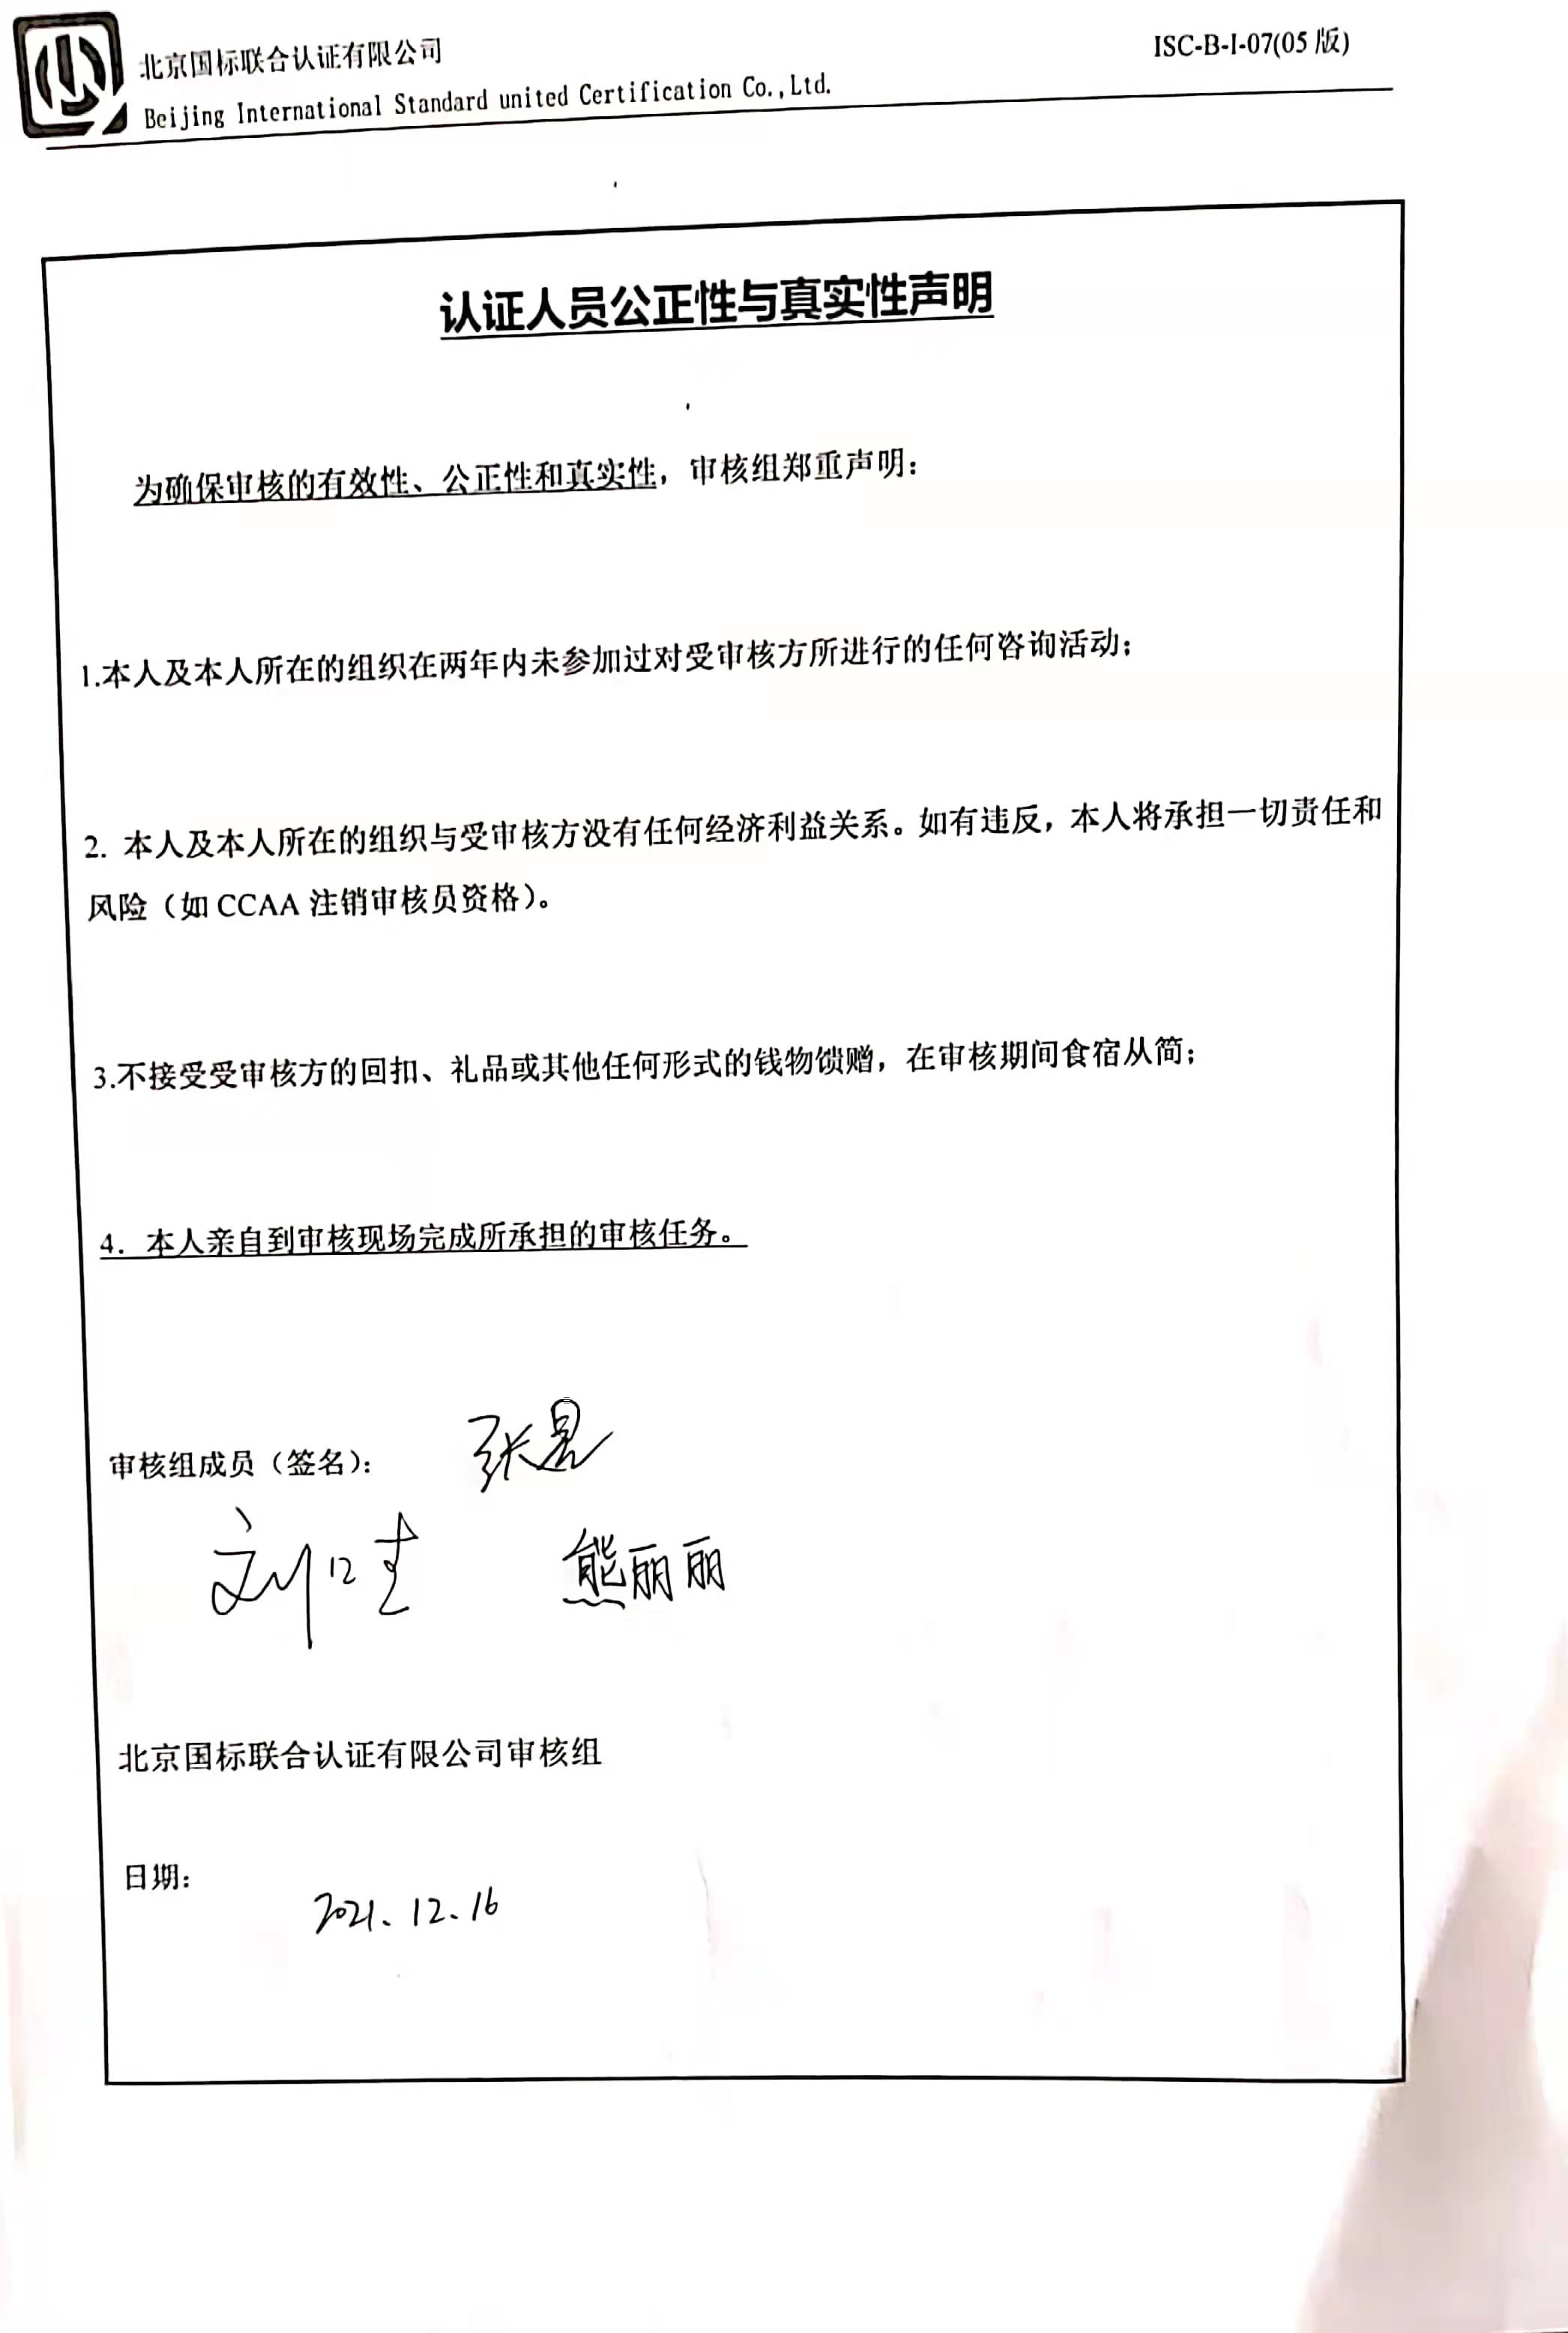 北京国标联合认证有限公司
ISC-B-I-07(05 版)
Beijing International Standard united Certification Co.,Ltd.
认证人员公正性与真实性声明
为确保审核的有效性、公正性和真实性，审核组郑重声明：
1.本人及本人所在的组织在两年内未参加过对受审核方所进行的任何咨询活动；
2. 本人及本人所在的组织与受审核方没有任何经济利益关系。如有违反，本人将承担一切责任和
风险（如 CCAA 注销审核员资格）。
3.不接受受审核方的回扣、礼品或其他任何形式的钱物馈赠，在审核期间食宿从简；
4. 本人亲自到审核现场完成所承担的审核任务。
审核组成员（签名）：
熊丽丽
北京国标联合认证有限公司审核组
日期：
2021.12.16